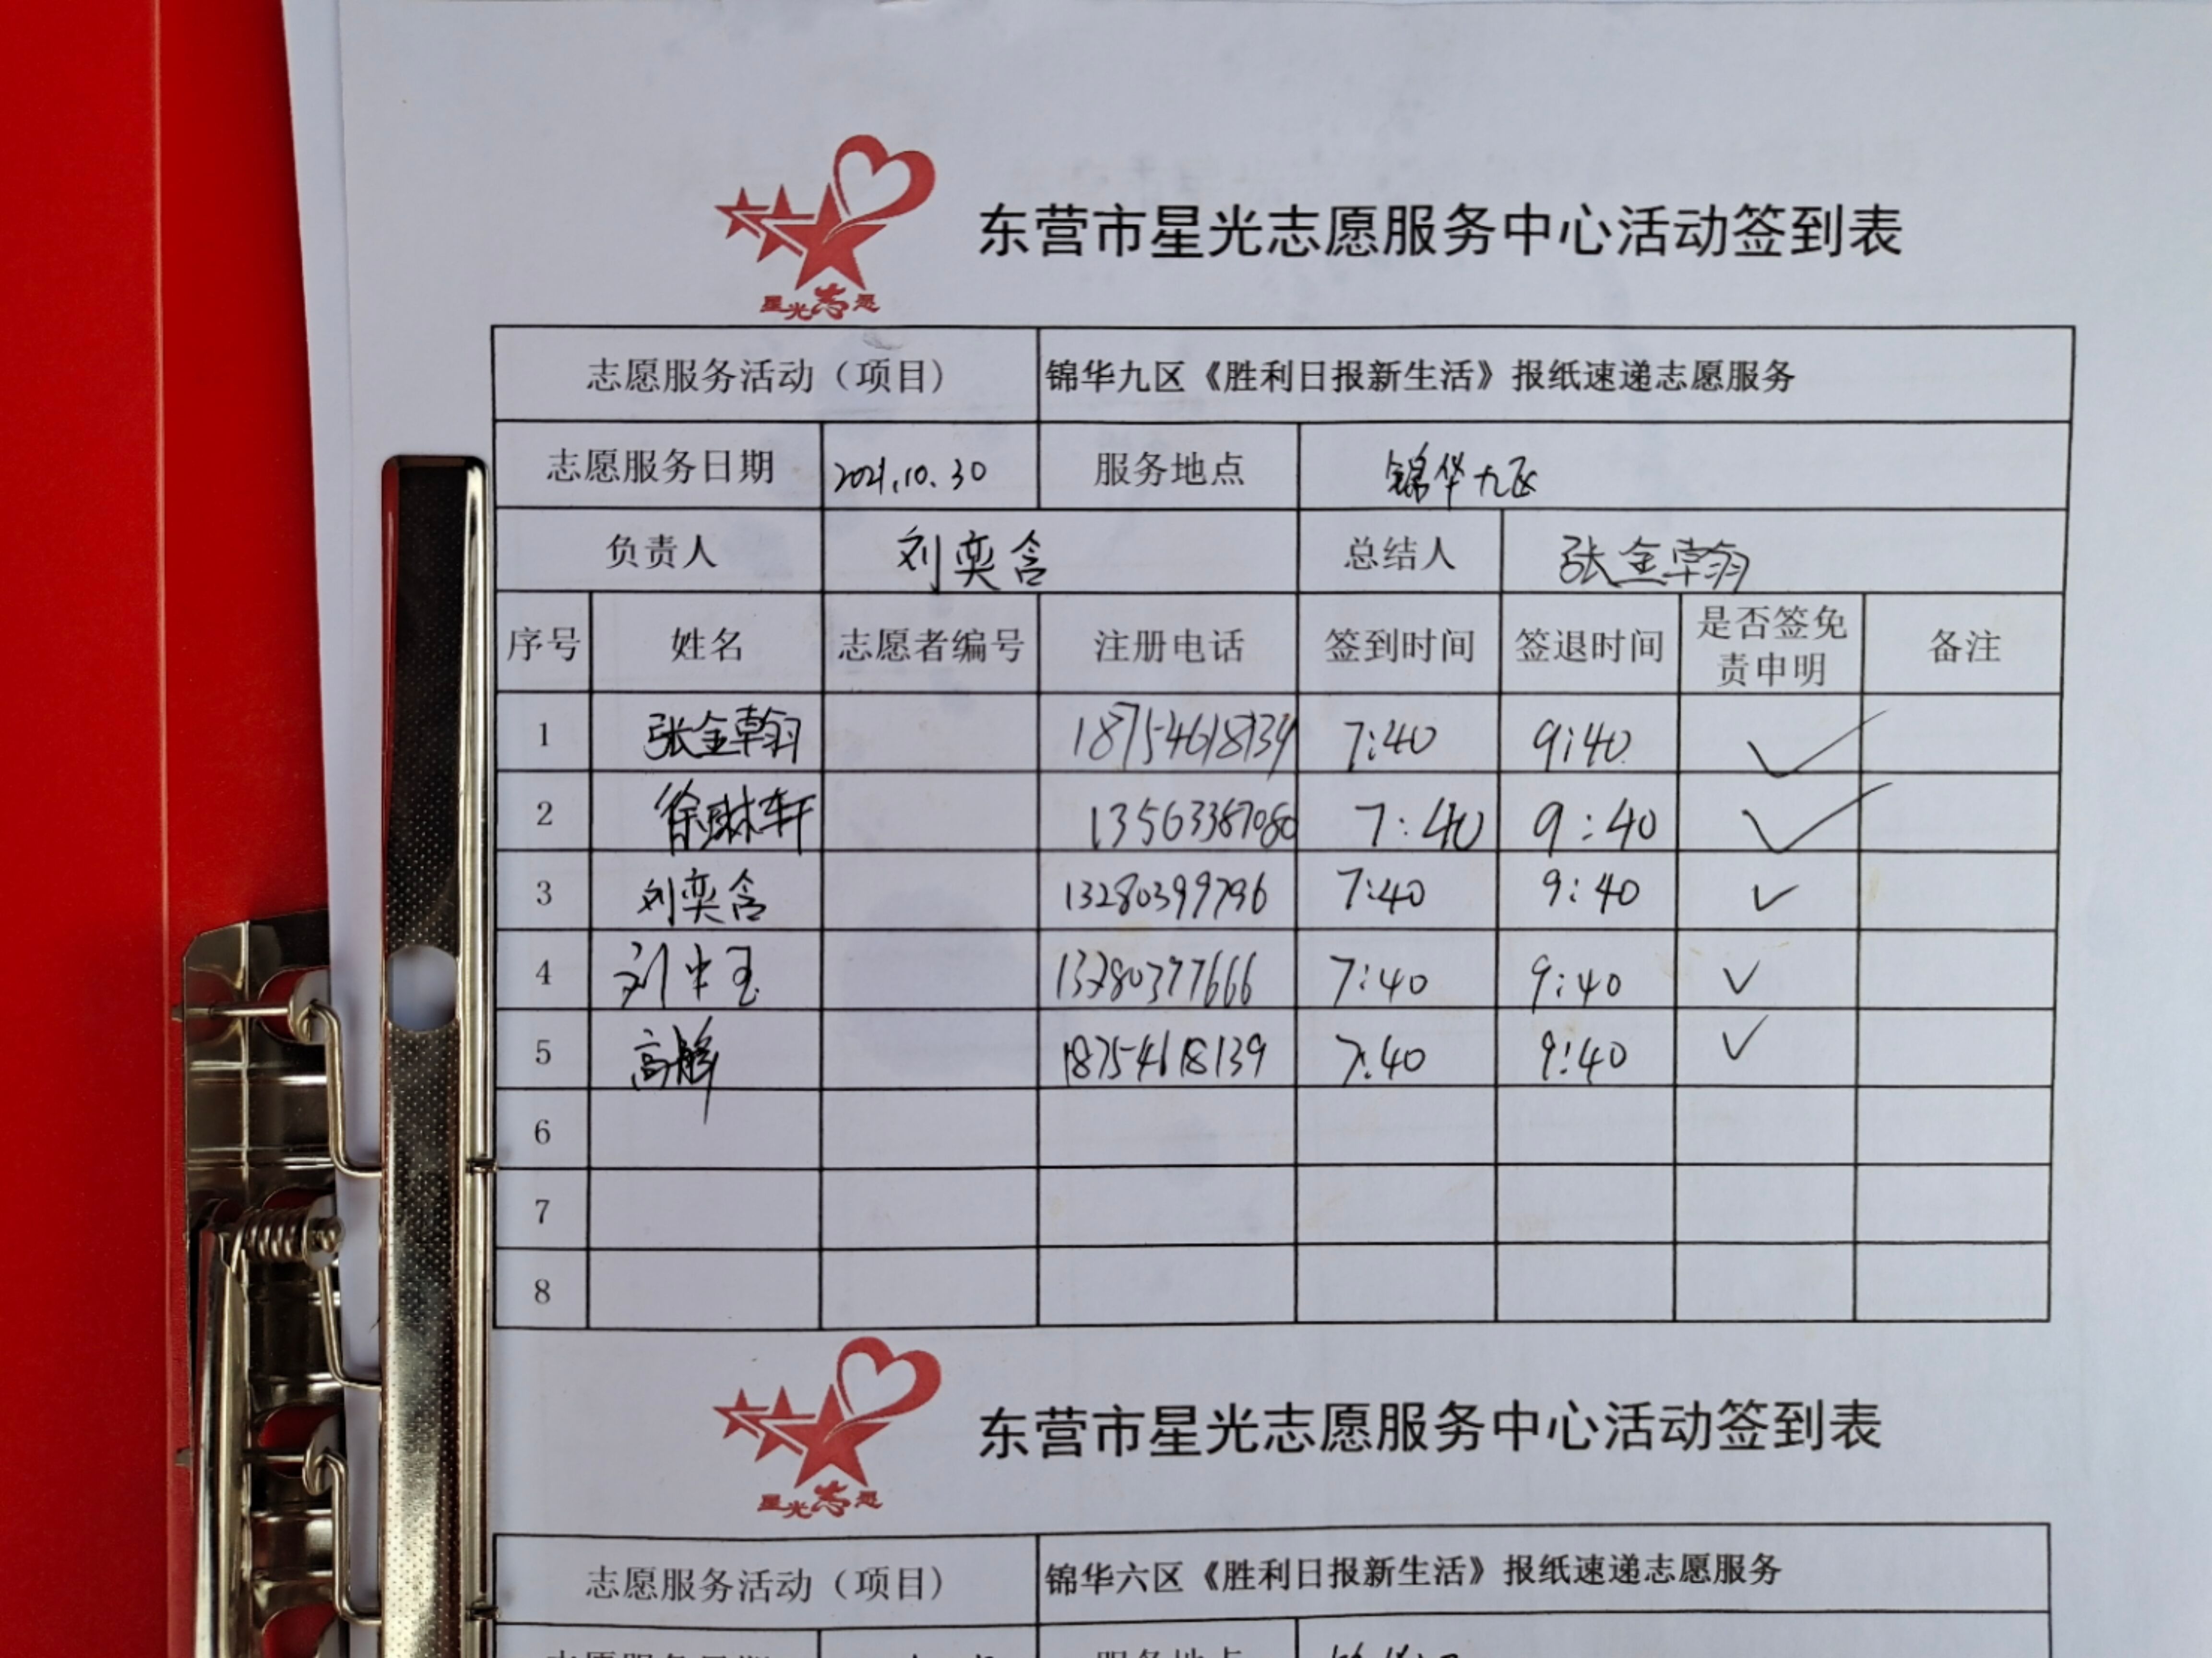 星光志愿
东营市星光志愿服务中心活动签到表
志愿服务活动（项目） 锦华九区《胜利日报新生活》报纸速递志愿服务
志愿服务日期 2021.10.30 服务地点 锦华九区
负责人 刘奕含 总结人 张金翰
序号 姓名 志愿者编号 注册电话 签到时间 签退时间 是否签免责申明 备注
1 张金翰 18754618139 7:40 9:40 ✓
2 徐琳轩 13563387080 7:40 9:40 ✓
3 刘奕含 13280399796 7:40 9:40 ✓
4 刘中玉 13280377666 7:40 9:40 ✓
5 高 18754618139 7:40 9:40 ✓
6
7
8
星光志愿
东营市星光志愿服务中心活动签到表
志愿服务活动（项目） 锦华六区《胜利日报新生活》报纸速递志愿服务
志愿服务日期 服务地点